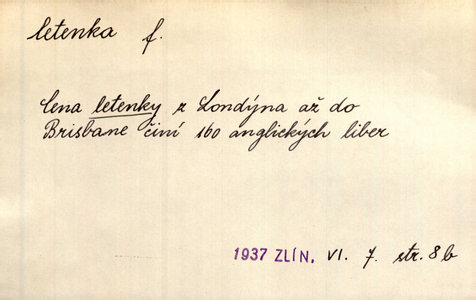 letenka f.
Cena letenky z Londýna až do
Brisbane činí 160 anglických liber
1937 ZLÍN. VI. 7. str. 8 b